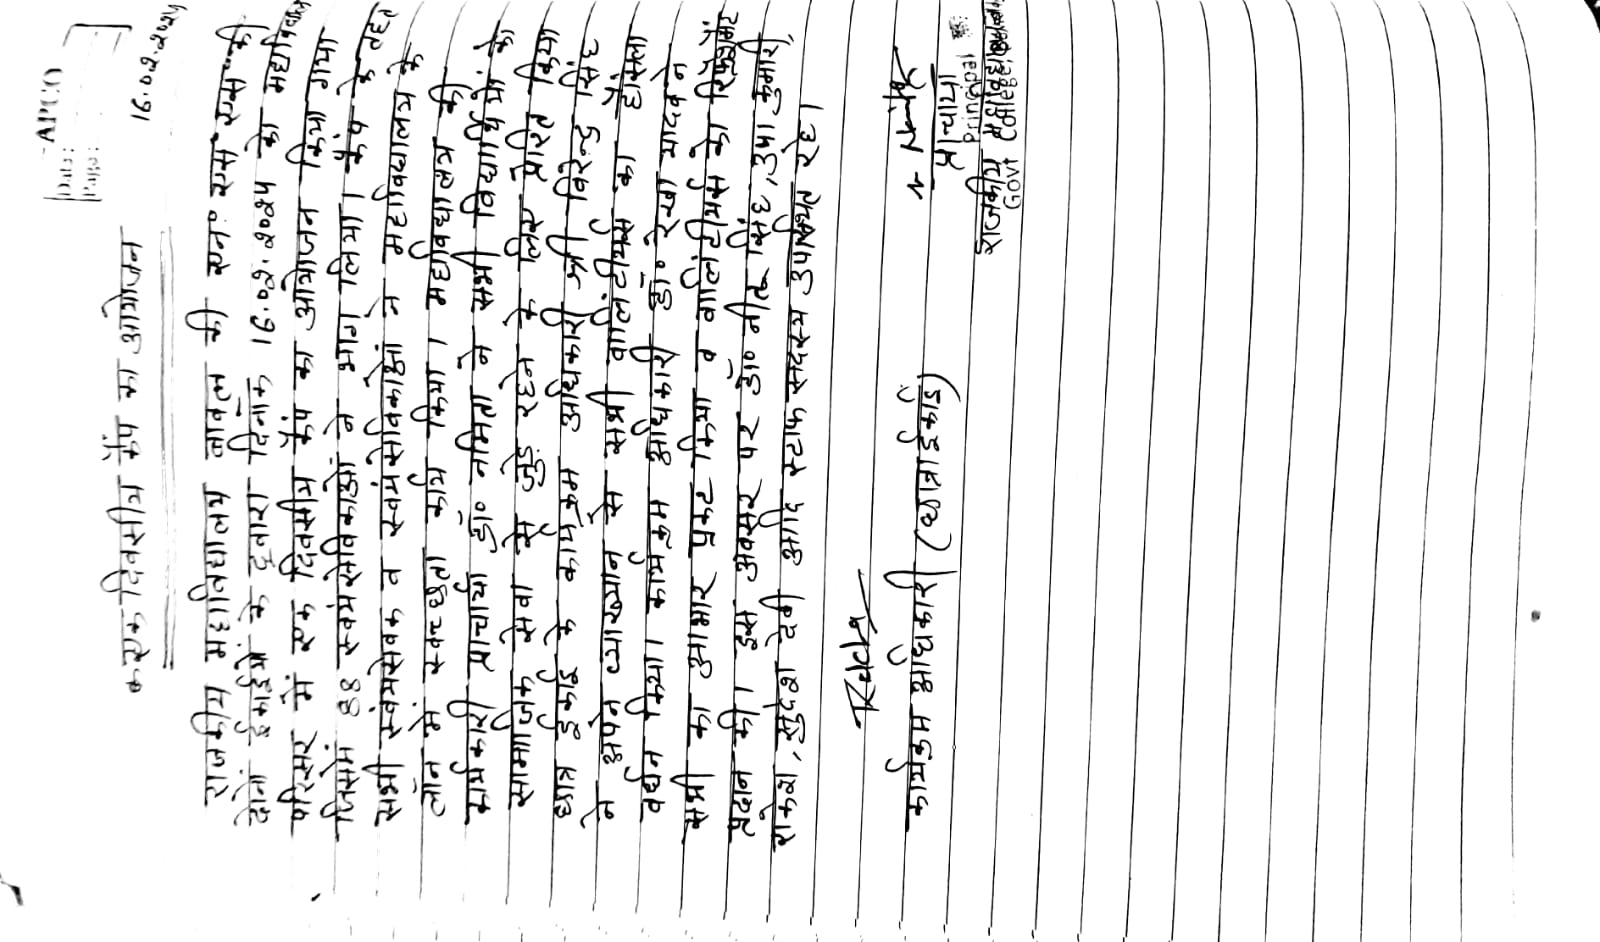 APCO
Date:
Page:
16.02.2024
एक दिवसीय कैंप का आयोजन
राजकीय महाविद्यालय बावल की एन॰ एस॰ एस॰ की
दोनों इकाईयों के द्वारा दिनांक 16.02.2024 को महाविद्यालय
परिसर में एक दिवसीय कैंप का आयोजन किया गया
जिसमें 88 स्वयंसेविकाओं ने भाग लिया। कैंप के तहत
सभी स्वंयसेवक व स्वयंसेविकाओं ने महाविद्यालय के
लॉन में स्वच्छता कार्य किया। महाविद्यालय की
कार्यकारी प्राचार्या डॉ॰ नमिता ने सभी विद्यार्थियों को
सामाजिक सेवा से जुड़े रहने के लिए प्रेरित किया
छात्र इकाई के कार्यक्रम अधिकारी श्री विरेन्द्र सिंह
ने अपने व्याख्यान से सभी वालंटीयर्स का हौंसला
वर्धन किया। कार्यक्रम अधिकारी डॉ॰ रेखा यादव ने
सभी का आभार प्रकट किया व वालंटीयर्स को रिफ्रेशमेंट
प्रदान की। इस अवसर पर डॉ॰ सिंह, उषा कुमारी,
राकेश, सुदेश देवी आदि स्टाफ सदस्य उपस्थित रहे।
Rekha
कार्यक्रम अधिकारी (छात्रा ईकाई)
प्राचार्या
Principal
राजकीय महाविद्यालय
Govt College